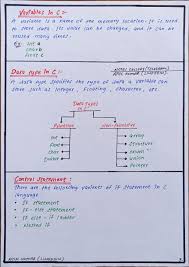 Variables In C :-
A variable is a name of the memory location. It is used
to store data. Its value can be changed, and it can be
reused many times.
Ex: int a
char b
float c
Data type In C :-
A data type specifies the type of data a variable can
store such as integer, floating, character, etc.
Data type
Primitive
Non-Primitive
int
float
char
Array
Structure
Union
pointer
Control Statement :-
There are the following variants of IF statement in C
language
If statement
If - else statement
If else - if ladder
Nested if